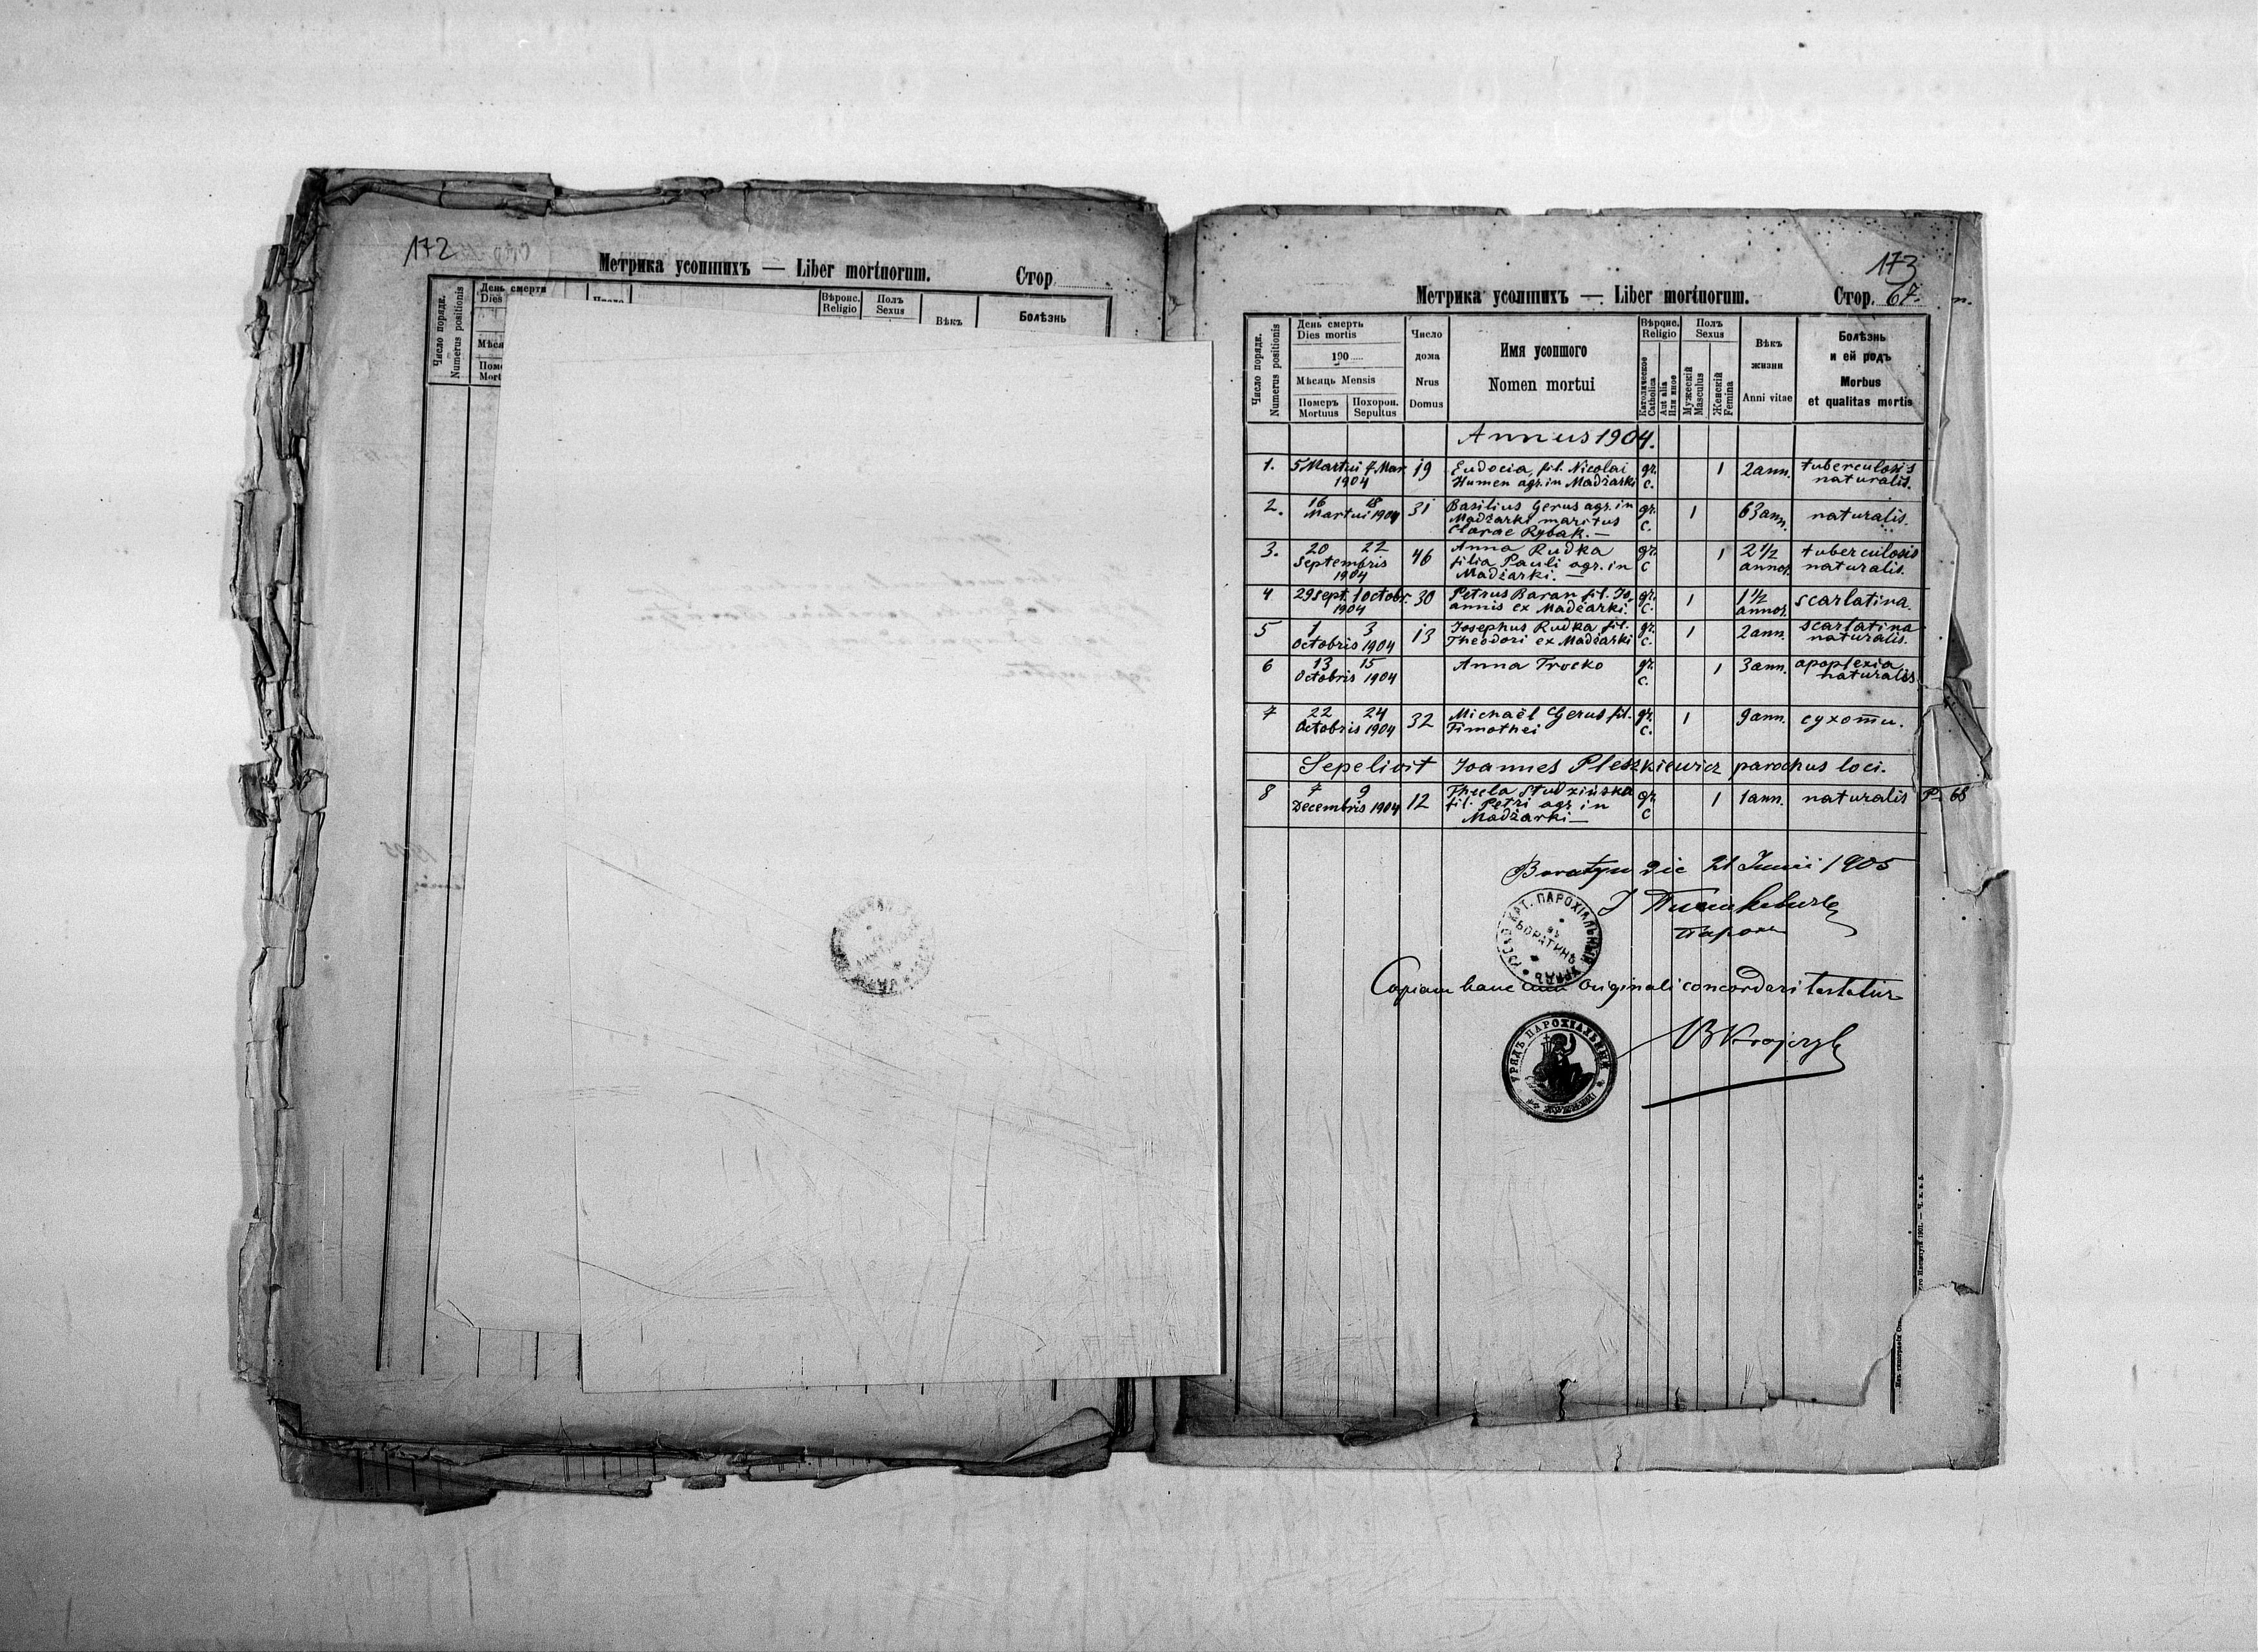 172
Метрика усопшихъ — Liber mortuorum.
Стор.
Число порядк.
Numerus positionis
День смерти
Dies
Вѣроис.
Religio
Полъ
Sexus
Вѣкъ
Болѣзнь
173
Метрика усопшихъ — Liber mortuorum.
Стор. 67.
Число порядк.
Numerus positionis
День смерть
Dies mortis
190
Мѣсяць Mensis
Померъ
Mortuus
Похорон.
Sepultus
Число
дома
Nrus
Domus
Имя усопшого
Nomen mortui
Вѣроис.
Religio
Католическое
Catholica
Aut alia
Или иное
Полъ
Sexus
Мужескій
Masculus
Женскій
Femina
Вѣкъ
жизни
Anni vitae
Болѣзнь
и ей родъ
Morbus
et qualitas mortis
Annus 1904.
1. 5 Martii 7 Mar. 1904 19 Eudocia, fil. Nicolai Humen agr. in Madżarki gr. c. 1 2 ann. tuberculosis naturalis.
2. 16 18 Martii 1904 31 Basilius Gerus agr. in Madżarki maritus Clarae Rybak. — gr. c. 1 63 ann. naturalis.
3. 20 22 Septembris 1904 46 Anna Rudka filia Pauli agr. in Madżarki. — gr. c 1 2 1/2 annor. tuberculosis naturalis.
4 29 Sept. 1 Octobr. 1904 30 Petrus Baran fil. Joannis ex Madżarki. gr. c. 1 1 1/2 annor. scarlatina.
5 1 3 Octobris 1904 13 Josephus Rudka fil. Theodori ex Madżarki gr. c. 1 2 ann. scarlatina naturalis.
6 13 15 Octobris 1904 Anna Trocko gr. c. 1 3 ann. apoplexia naturalis
7 22 24 Octobris 1904 32 Michaël Gerus fil. Timothei gr. c. 1 9 ann. сухоти.
Sepelivit Joannes Pleszkiewicz parochus loci.
8 7 9 Decembris 1904 12 Thecla Studzińska fil. Petri agr. in Madżarki — gr. c 1 1 ann. naturalis P. 68
Boratyn die 21 Junii 1905
парох
ПАРОХІАЛЬНЫЙ
БОРАТИНѢ
Copiam hanc cum originali concordari testatur
УРЯДЪ ПАРОХІАЛЬНЫЙ